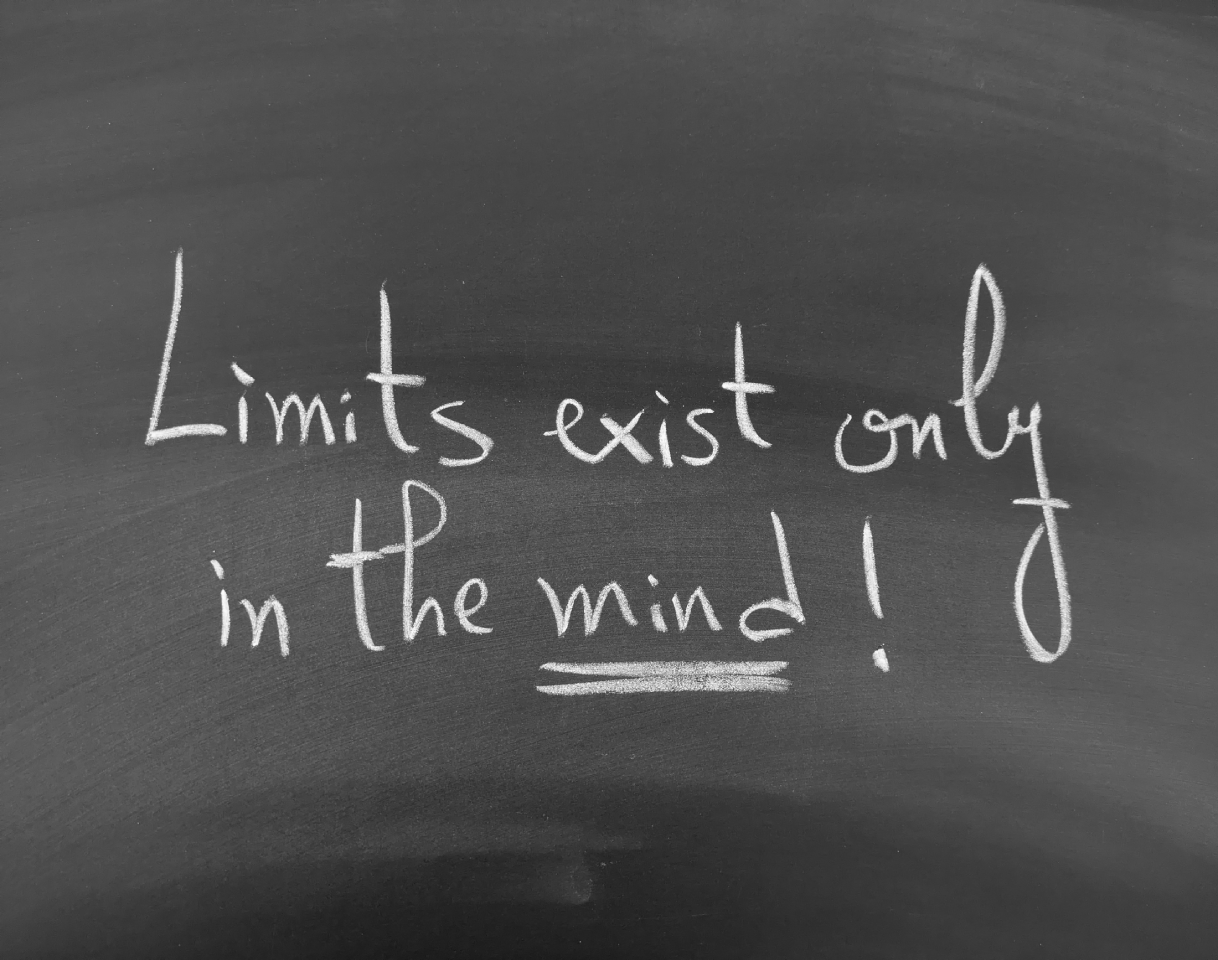 Limits exist only
in the mind!